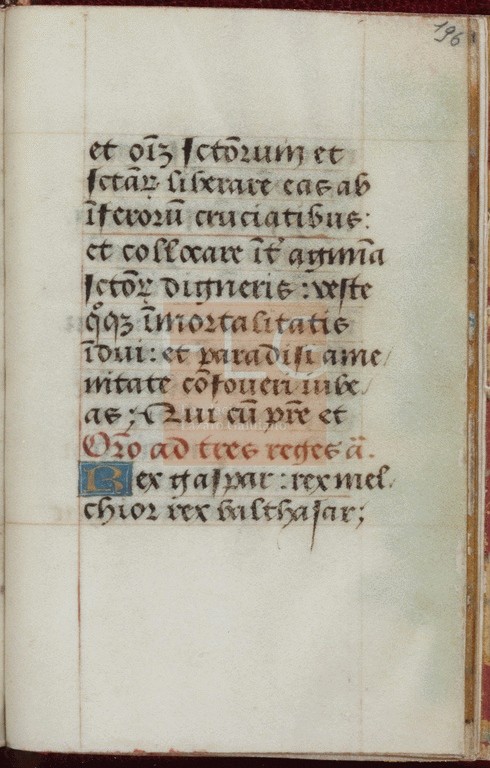 196
et oīʒ sctōrum et
sctāꝝ liberare eas ab
īferorū cruciatibus:
et collocare īt͛ agmīa
sctōꝝ digneris: veste
qͦqꝫ īmortalitatis
īdui: et paradisi ame/
nitate cōfoveri iube/
as; Qui cū pr̄e et
Or̄o ad tres reges ā.
Rex gaspar: rex mel/
chior rex balthasar;